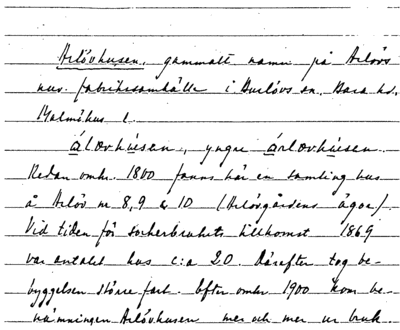 Arlövhusen, gammalt namn på Arlövs
nuv. fabrikssamhälle i Burlövs sn, Bara hd,
Malmöhus l.
álǝvhúsen, yngre árlǝvhúsen.
Redan omkr. 1800 fanns här en samling hus
å Arlöv nr 8, 9 & 10 (Arlövgårdens ägor).
Vid tiden för sockerbrukets tillkomst 1869
var antalet hus c:a 20. Därefter tog be-
byggelsen större fart. Efter omkr. 1900 kom be-
nämningen Arlövhusen mer och mer ur bruk.